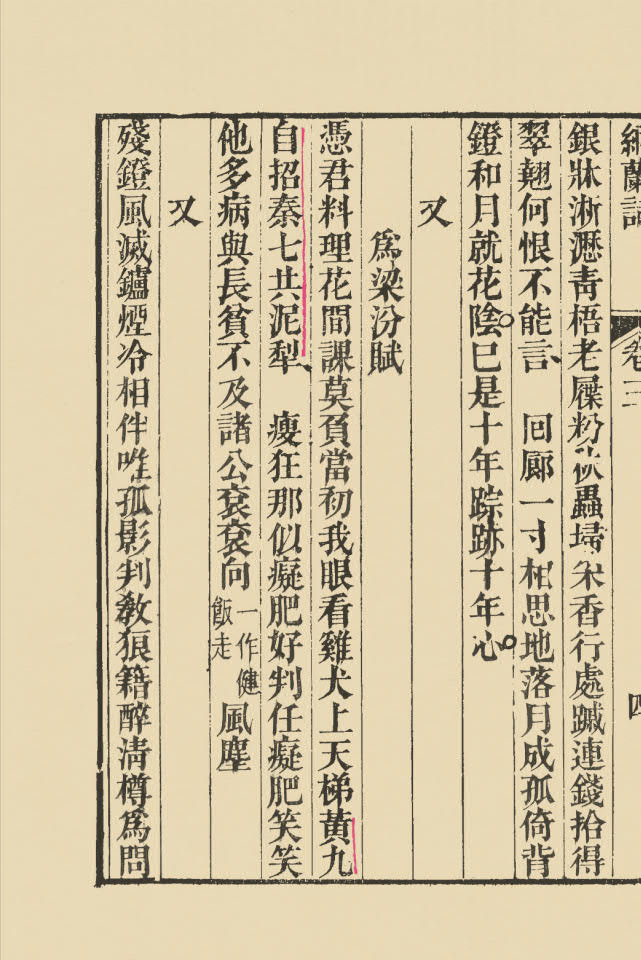 納蘭詞 卷三 四
銀牀淅瀝靑梧老屧粉秋蟲埽采香行處蹴連錢拾得
翠翹何恨不能言 囘廊一寸相思地落月成孤倚背
鐙和月就花陰。已是十年踪跡十年心。
又
爲梁汾賦
憑君料理花間課莫負當初我眼看雞犬上天梯黃九
自招秦七共泥犁、 瘦狂那似癡肥好判任癡肥笑笑
他多病與長貧不及諸公袞袞向一作健飯走風塵
又
殘鐙風滅鑪煙冷相伴唯孤影判敎狼籍醉淸樽爲問